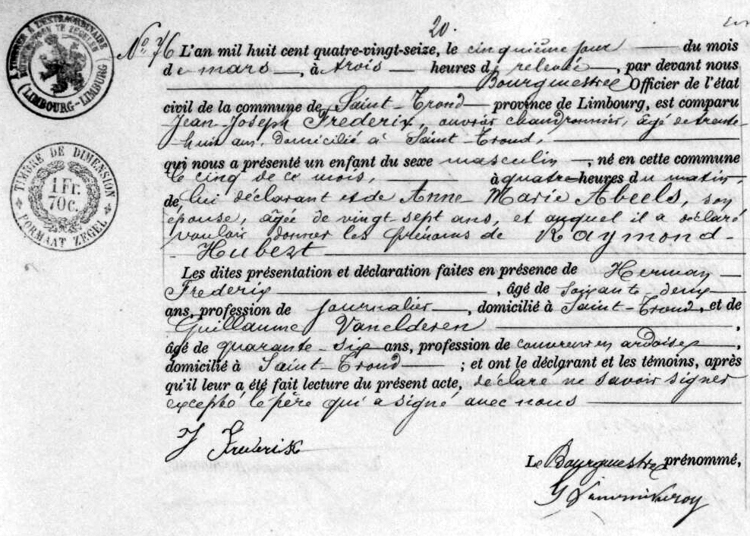 20.
No. 76 L'an mil huit cent quatre-vingt-seize, le cinquième jour du mois
de mars, à trois heures de relevée, par devant nous
Bourgmestre Officier de l'état
civil de la commune de Saint-Trond province de Limbourg, est comparu
Jean-Joseph Frederix, ouvrier chaudronnier, âgé de trente-
huit ans, domicilié à Saint-Trond,
qui nous a présenté un enfant du sexe masculin, né en cette commune
le cinq de ce mois, à quatre heures du matin,
de lui déclarant et de Anne Marie Abeels, son
épouse, âgée de vingt sept ans, et auquel il a déclaré
vouloir donner les prénoms de Raymond-
Hubert
Les dites présentation et déclaration faites en présence de Herman
Frederix, âgé de soixante deux
ans, profession de journalier, domicilié à Saint-Trond, et de
Guillaume Vanelderen,
âgé de quarante six ans, profession de couvreur en ardoises,
domicilié à Saint-Trond; et ont le déclarant et les témoins, après
qu'il leur a été fait lecture du présent acte, déclaré ne savoir signer
excepté le père qui a signé avec nous
J Frederix
Le Bourgmestre prénommé,
(LIMBOURG-LIMBURG)
TIMBRE DE DIMENSION
1 Fr.
70c.
FORMAAT ZEGEL